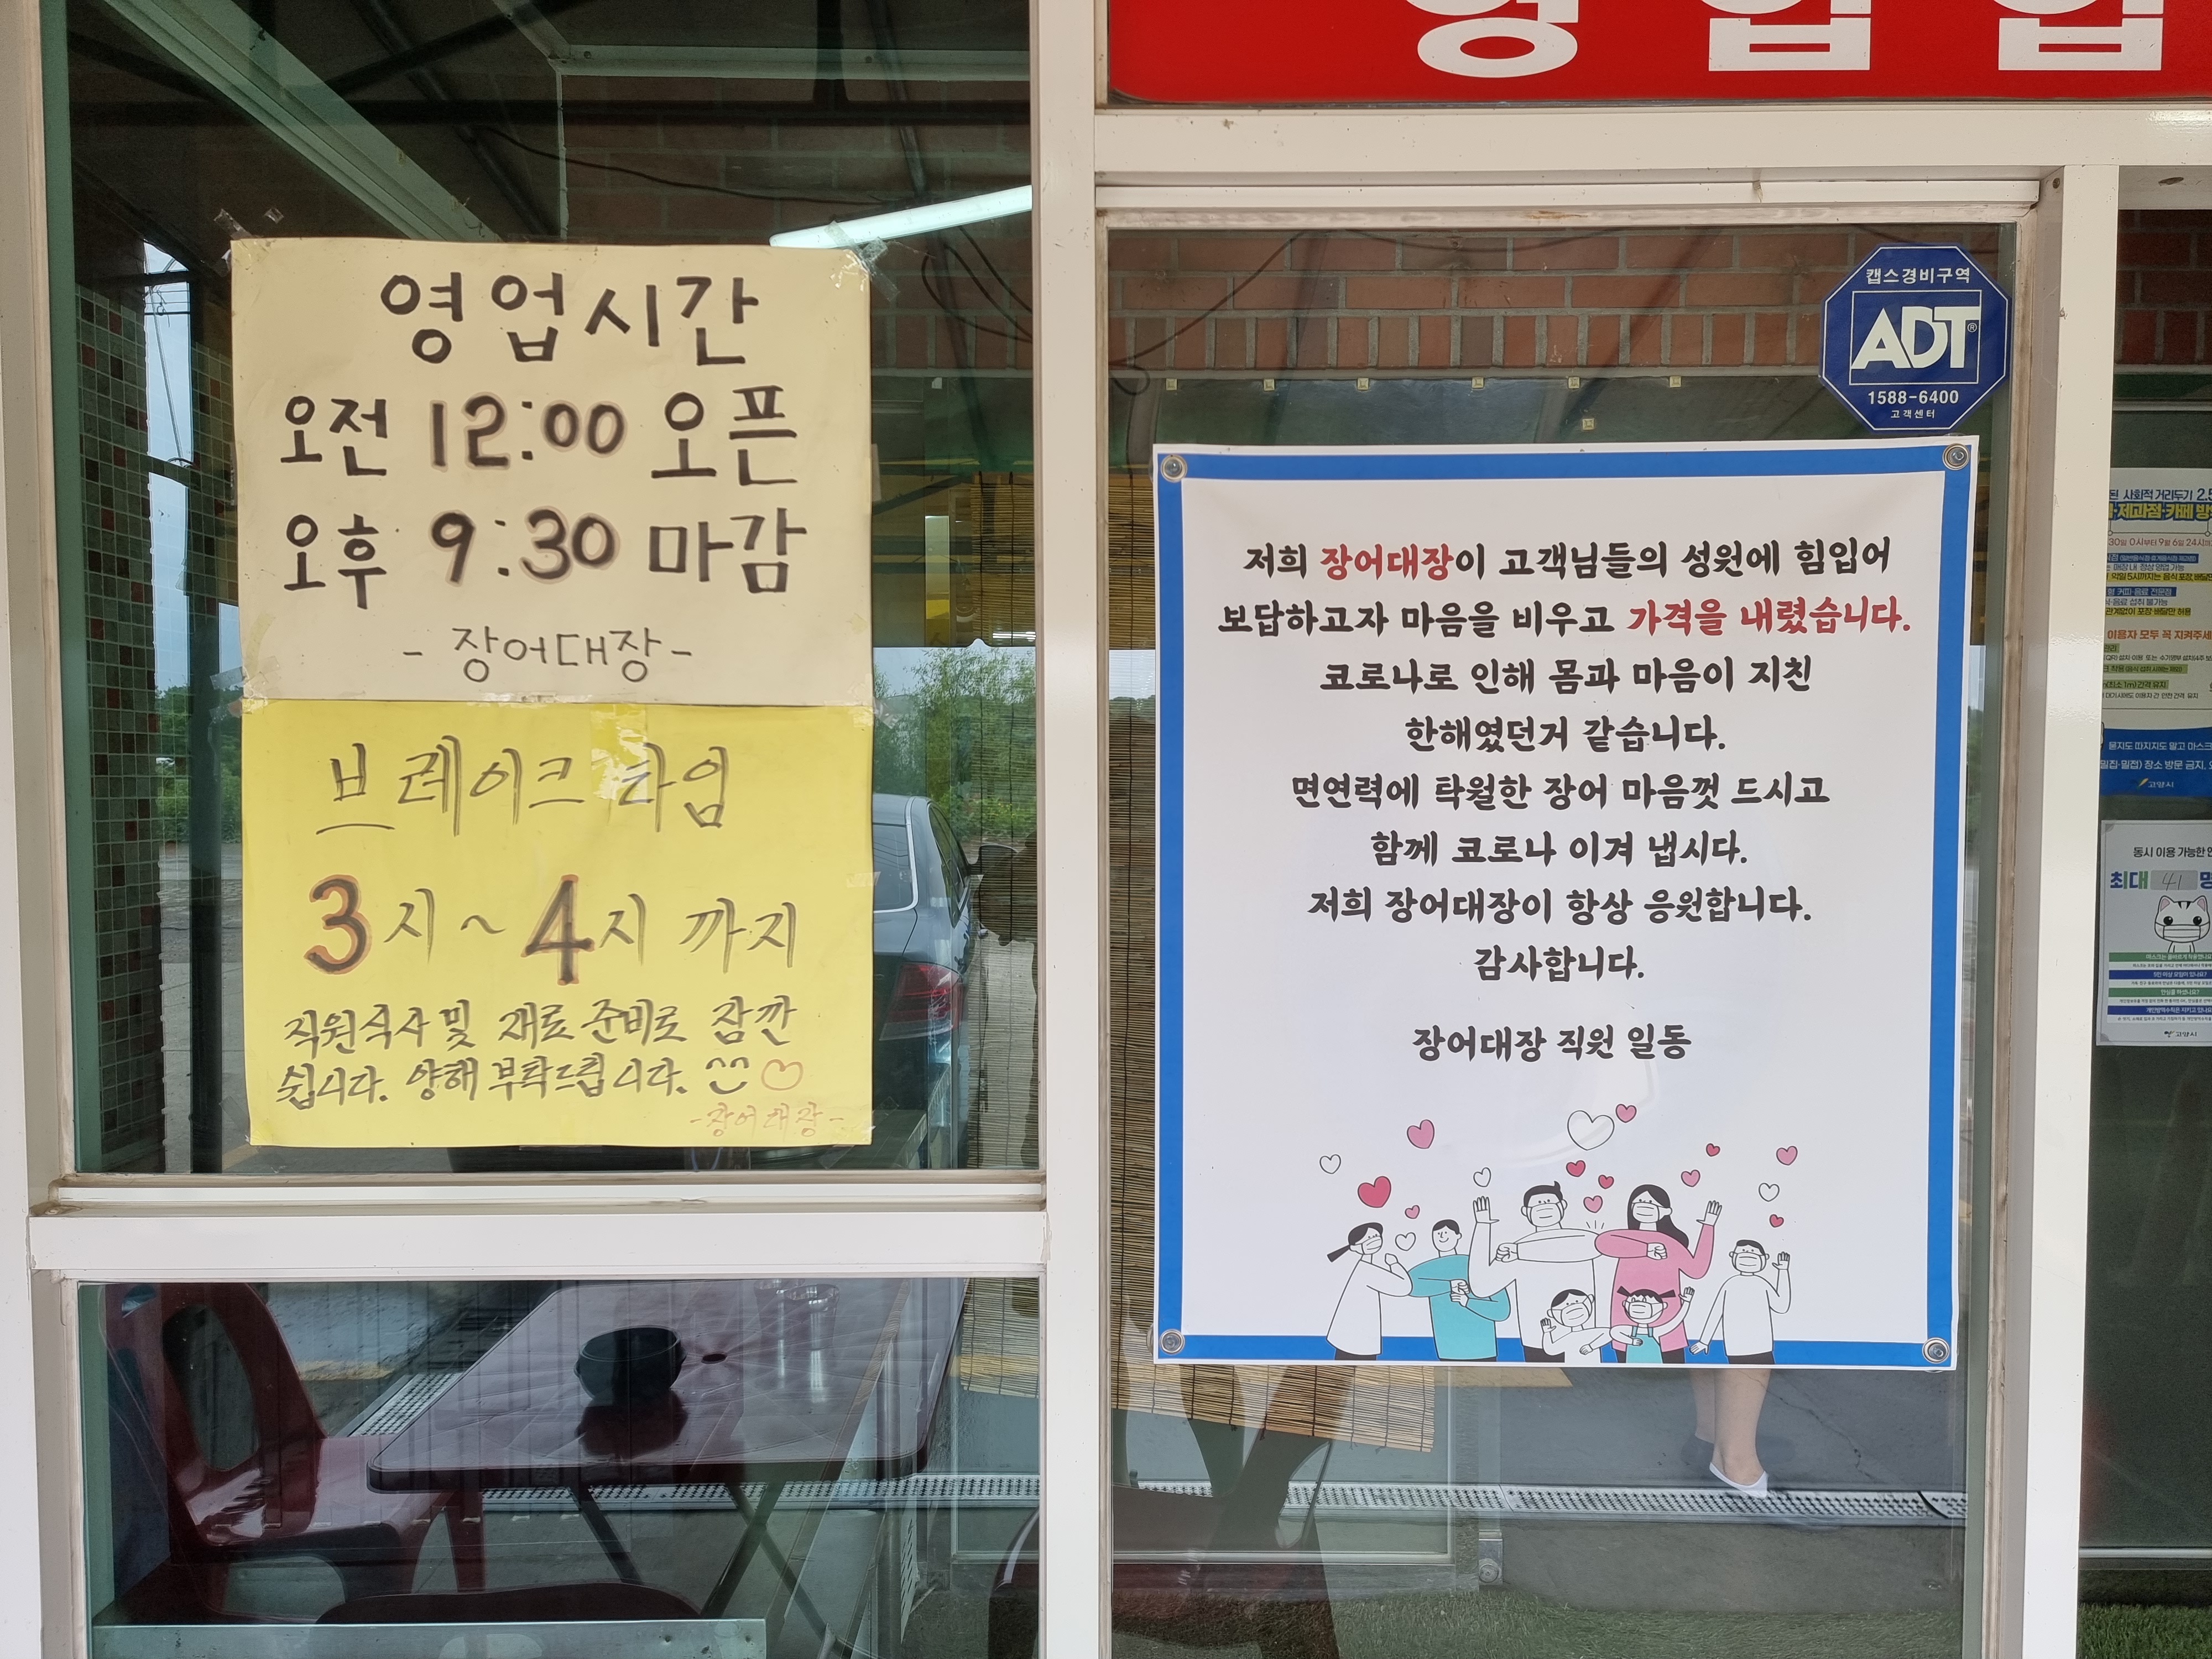 영업시간
오전 12:00 오픈
오후 9:30 마감
- 장어대장 -
브레이크 타임
3시 ~ 4시 까지
직원식사 및 재료준비로 잠깐
쉽니다. 양해 부탁드립니다.
-장어대장-
캡스경비구역
ADT®
1588-6400
고객센터
저희 장어대장이 고객님들의 성원에 힘입어
보답하고자 마음을 비우고 가격을 내렸습니다.
코로나로 인해 몸과 마음이 지친
한해였던거 같습니다.
면연력에 탁월한 장어 마음껏 드시고
함께 코로나 이겨 냅시다.
저희 장어대장이 항상 응원합니다.
감사합니다.
장어대장 직원 일동
사회적 거리두기
제과점·카페
30일 0시부터 9월 6일 24시
이용자 모두 꼭 지켜주세
묻지도 따지지도 말고 마스크
밀집·밀접) 장소 방문 금지,
고양시
동시 이용 가능한
최대 41 명
고양시